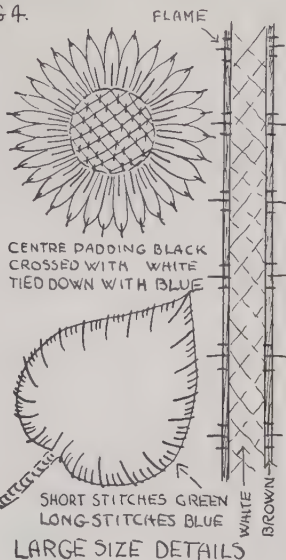 G 4.
FLAME
CENTRE PADDING BLACK
CROSSED WITH WHITE
TIED DOWN WITH BLUE
SHORT STITCHES GREEN
LONG STITCHES BLUE
WHITE
BROWN
LARGE SIZE DETAILS